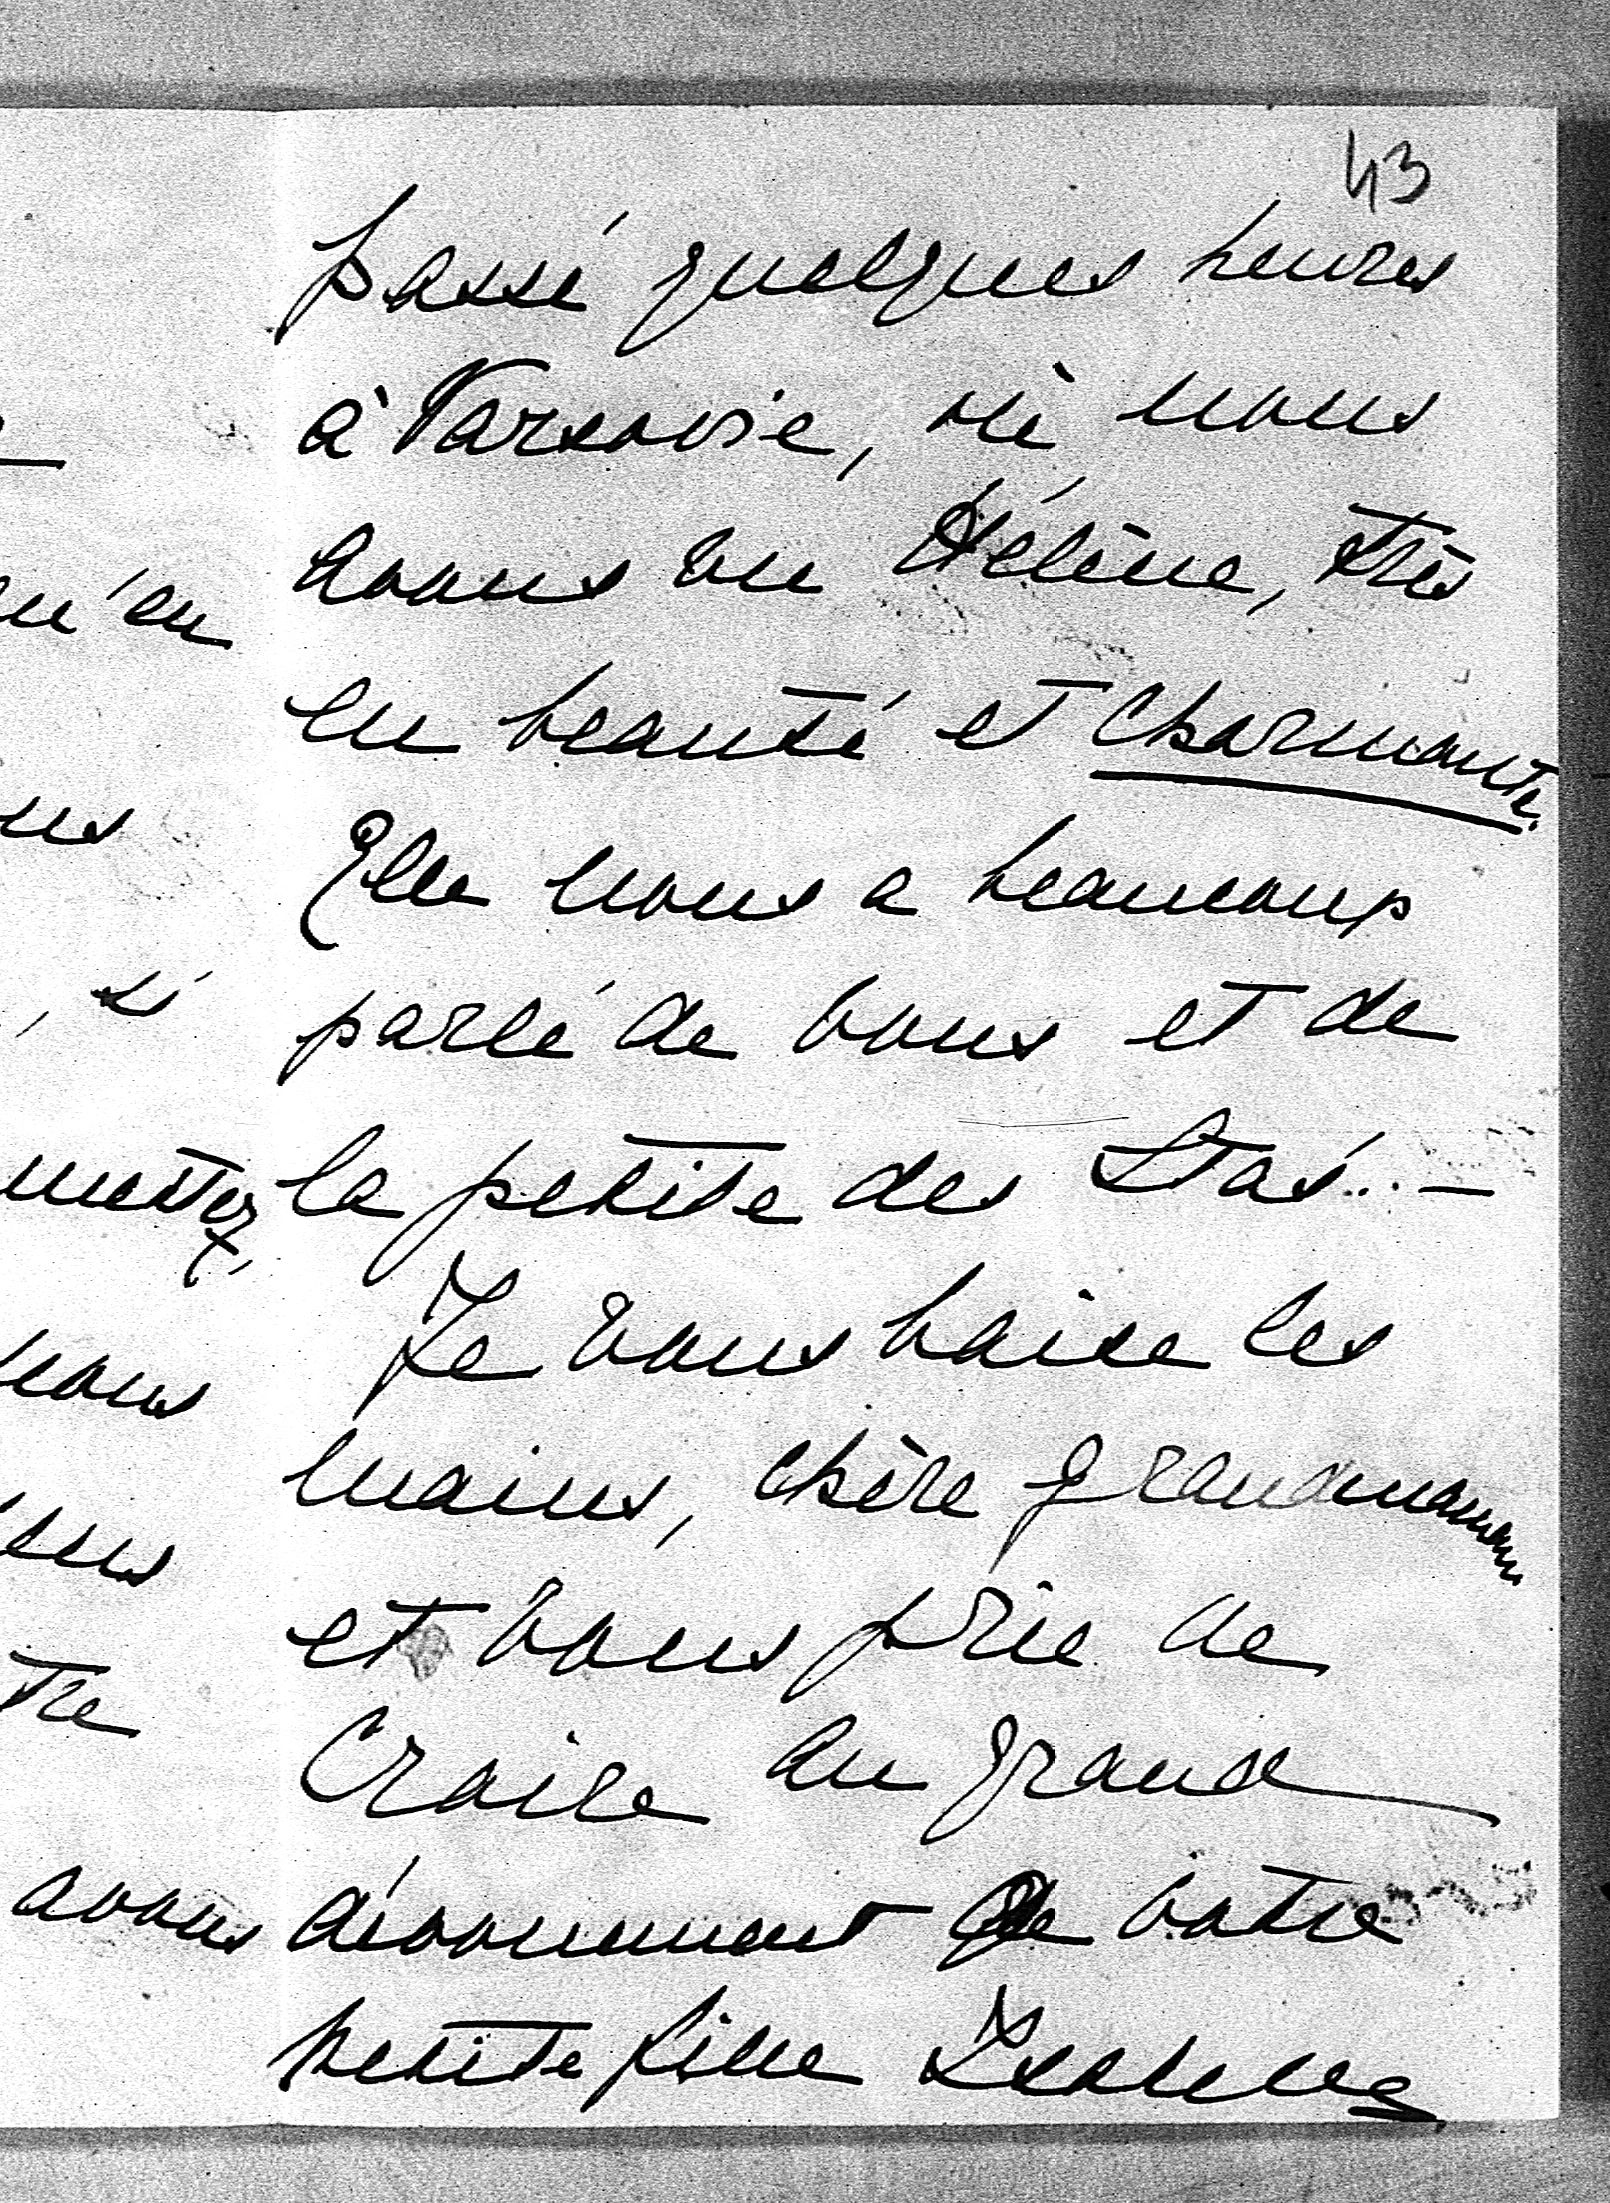 43
passé quelques heures
à Varsovie, où nous
avons vu Hélène, très
en beauté et charmante.
Elle nous a beaucoup
parlé de vous et de
la petite des Staś... —
Je vous baise les
mains, chère grandmaman
et vous prie de
croire au grand
dévouement de votre
petite fille Isabelle
qu'en
us
, si
mettez,
nous
tre
avons